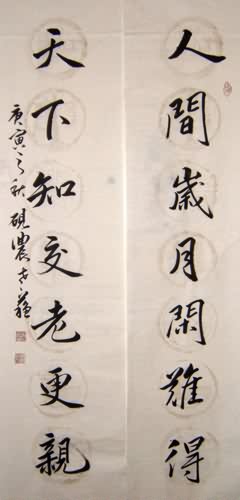 人間歲月閑難得
天下知交老更親
庚寅之秋硯農老蘓